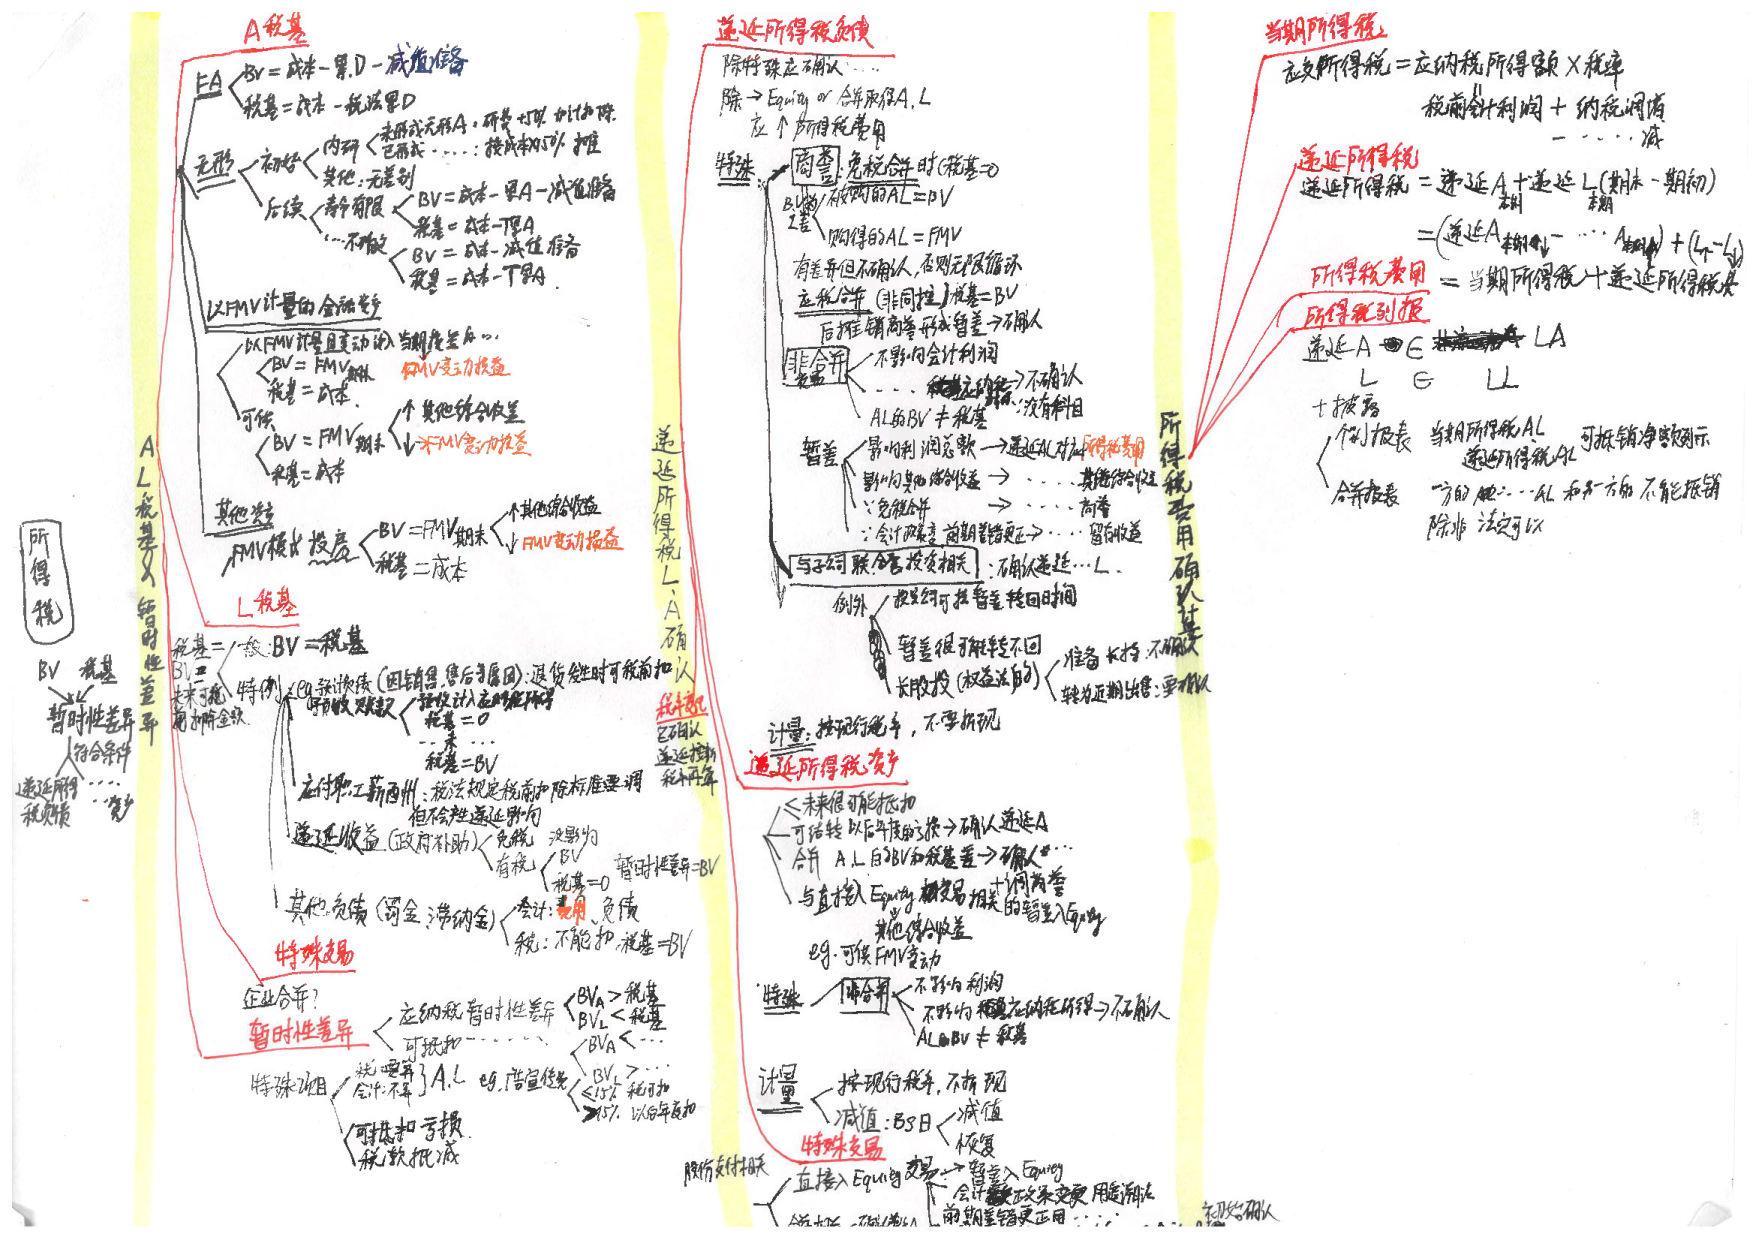 所得税
BV 税基
暂时性差异
符合条件
递延所得税负债
……资产
AL税基及暂时性差异
A税基
FA
BV=成本-累D-减值准备
税基=成本-税法累D
无形
初始
内研
未形成无形A:研费+50%加计扣除
已形成……:按成本的150%摊
其他:无差别
后续
寿命有限
BV=成本-累A-减值准备
税基=成本-T累A
BV=成本-减值准备
税基=成本-T累A
以FMV计量的金融资产
以FMV计量且变动计入当期损益的…
BV=FMV期末
FMV变动损益
税基=成本
可供
BV=FMV期末
↑其他综合收益
↓FMV变动损益
税基=成本
其他资产
FMV模式投房
BV=FMV期末
↑其他综合收益
↓FMV变动损益
税基=成本
L税基
税基=
BV-
未来可税前扣除金额
一般:BV=税基
特例
eg.预计负债(因销售,售后等原因):退货发生时可税前扣
预收账款
税基=0
…未…
税基=BV
应付职工薪酬:税法规定税前扣除标准要调
但不会产生递延影响
递延收益(政府补助)
免税 没影响
有税
BV
税基=0
暂时性差异=BV
其他负债(罚金,滞纳金)
会计:费用、负债
税:不能扣,税基=BV
特殊交易
企业合并?
暂时性差异
应纳税暂时性差异
BVA>税基
BVL<税基
可抵扣……
BVA<…
BVL>…
特殊项目
会计:不等
A.L
eg.广宣传费
≤15% 税可扣
>15% 以后年度扣
可抵扣亏损
税款抵减
递延所得税L、A确认
税率变化
已确认
递延按新
税率再算
递延所得税负债
除特殊应确认……
除→Equity or 合并取得A.L
应↑所得税费用
特殊
商誉:免税合并时(税基=0
被购的AL=BV
购得的AL=FMV
有差异但不确认,否则无限循环
应税合并(非同控)税基=BV
后摊销商誉形成暂差→不确认
非合并
交易
不影响会计利润
……应纳税→不确认
AL的BV≠税基 ∵没有科目
暂差
影响利润总额→递延AL对应所得税费用
影响其他综合收益→……其他综合收益
∵免税合并→……商誉
∵会计政策变,前期差错更正→……留存收益
与子公司联.合营投资相关:不确认递延…L.
例外
投资公司可控暂差转回时间
暂差很可能转不回
长股投(权益法的)
准备长持:不确认
转为近期出售:要确认
计量:按现行税率,不要折现
递延所得税资产
未来很可能抵扣
可结转以后年度的亏损→确认递延A
合并 A.L的BV和税基差→确认…
+调商誉
与直接入Equity交易相关的暂差入Equity
其他综合收益
eg.可供FMV变动
特殊
非合并
不影响利润
不影响应纳税所得→不确认
AL的BV≠税基
计量
按现行税率,不折现
减值:BS日
减值
恢复
特殊交易
股份支付相关
直接入Equity交易→暂差入Equity
会计政策变更用追溯法
前期差错更正用……
初始确认
所得税费用确认计量
当期所得税
应交所得税=应纳税所得额×税率
税前会计利润+纳税调增
-……减
递延所得税
递延所得税=递延A本期+递延L本期(期末-期初)
所得税费用=当期所得税+递延所得税费
所得税列报
递延A∈LA
L∈LL
+披露
个别报表
当期所得税AL
递延所得税AL
可抵销净额列示
合并报表
一方的…AL和另一方的不能抵销
除非法定可以